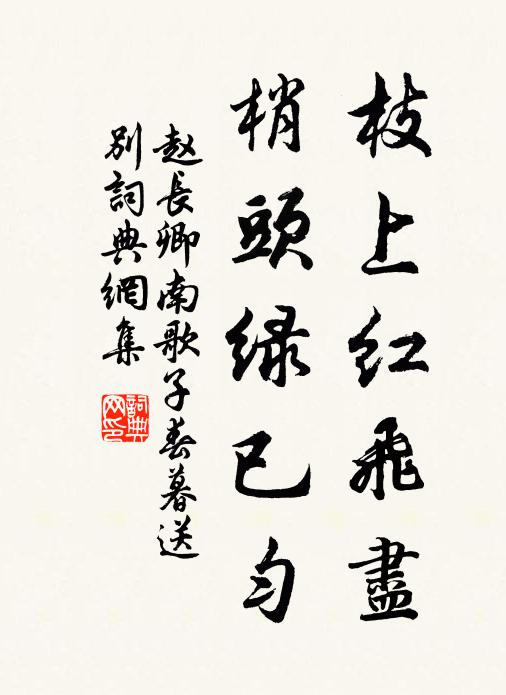 枝上红飛盡
梢頭绿已匀
赵長卿南歌子春暮送
别詞典網集
詞典
网印